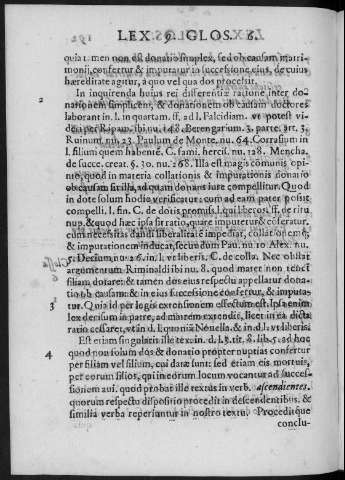 LEX. 9. GLOS. 8.
quia t. men non est donatio simplex, sed ob causam matri-
monij, confertur & imputatur in successione eius, de cuius
hæreditate agitur, à quo vel qua dos processit.
In inquirenda huius rei differentiæ ratione inter do-
2
nationem simplicem, & donationem ob causam doctores
laborant in l. in quartam. ff. ad l. Falcidiam. vt potest vi-
deri per Ripam. ibi nu. 148. Berengarium. 3. parte. art. 3.
Ruinum nu. 23. Paulum de Monte. nu. 64. Corrasium in
l. filium quem habentē. C. fami. hercis. nu. 128. Mencha.
de succe. creat. §. 30. nu. 168. Illa est magis comunis opi-
nio, quod in materia collationis & imputationis donatio
ob causam sit illa, ad quam donans iure compellitur. Quod
in dote solum hodie verificatur: cum ad eam pater possit
compelli. l. fin. C. de dotis promis. l. qui liberos. ff. de ritu
nup. & quod hæc ipsa sit ratio, quare imputetur & cōferatur,
cum necessitas dandi liberalitatē impediat, collationemq́;
& imputationem inducat, secundum Pau. nu. 10 Alex. nu.
15. Decium. nu. 26. in l. vt liberis. C. de colla. Nec obstat
argumentum Riminaldi ibi nu. 8. quod mater non tenet
filiam dotare: & tamen dos eius respectu appellatur dona-
tio ob causam: & in eius successione confertur, & imputa-
3
tur. Quia id per legis extensionem effectum est. Ipsa enim
lex decisum in parte, ad matrem extendit, licet in ea dicta
ratio cessaret, vt in d. Eptoniā Nouella. & in d. l. vt liberis.
Est etiam singularis ille tex. in. d. l. 3. tit. 8. lib. 5. ad hoc
4
quod non solum dos & donatio propter nuptias confertur
per filiam vel filium, cui datæ sunt: sed etiam eis mortuis,
per eorum filios, qui in eorum locum vocantur ad succes-
sionem aui. quod probat ille textus in verb. ascendientes.
quorum respectu dispositio procedit in descendentibus. &
similia verba reperiuntur in nostro textu. Proceditque
conclu-